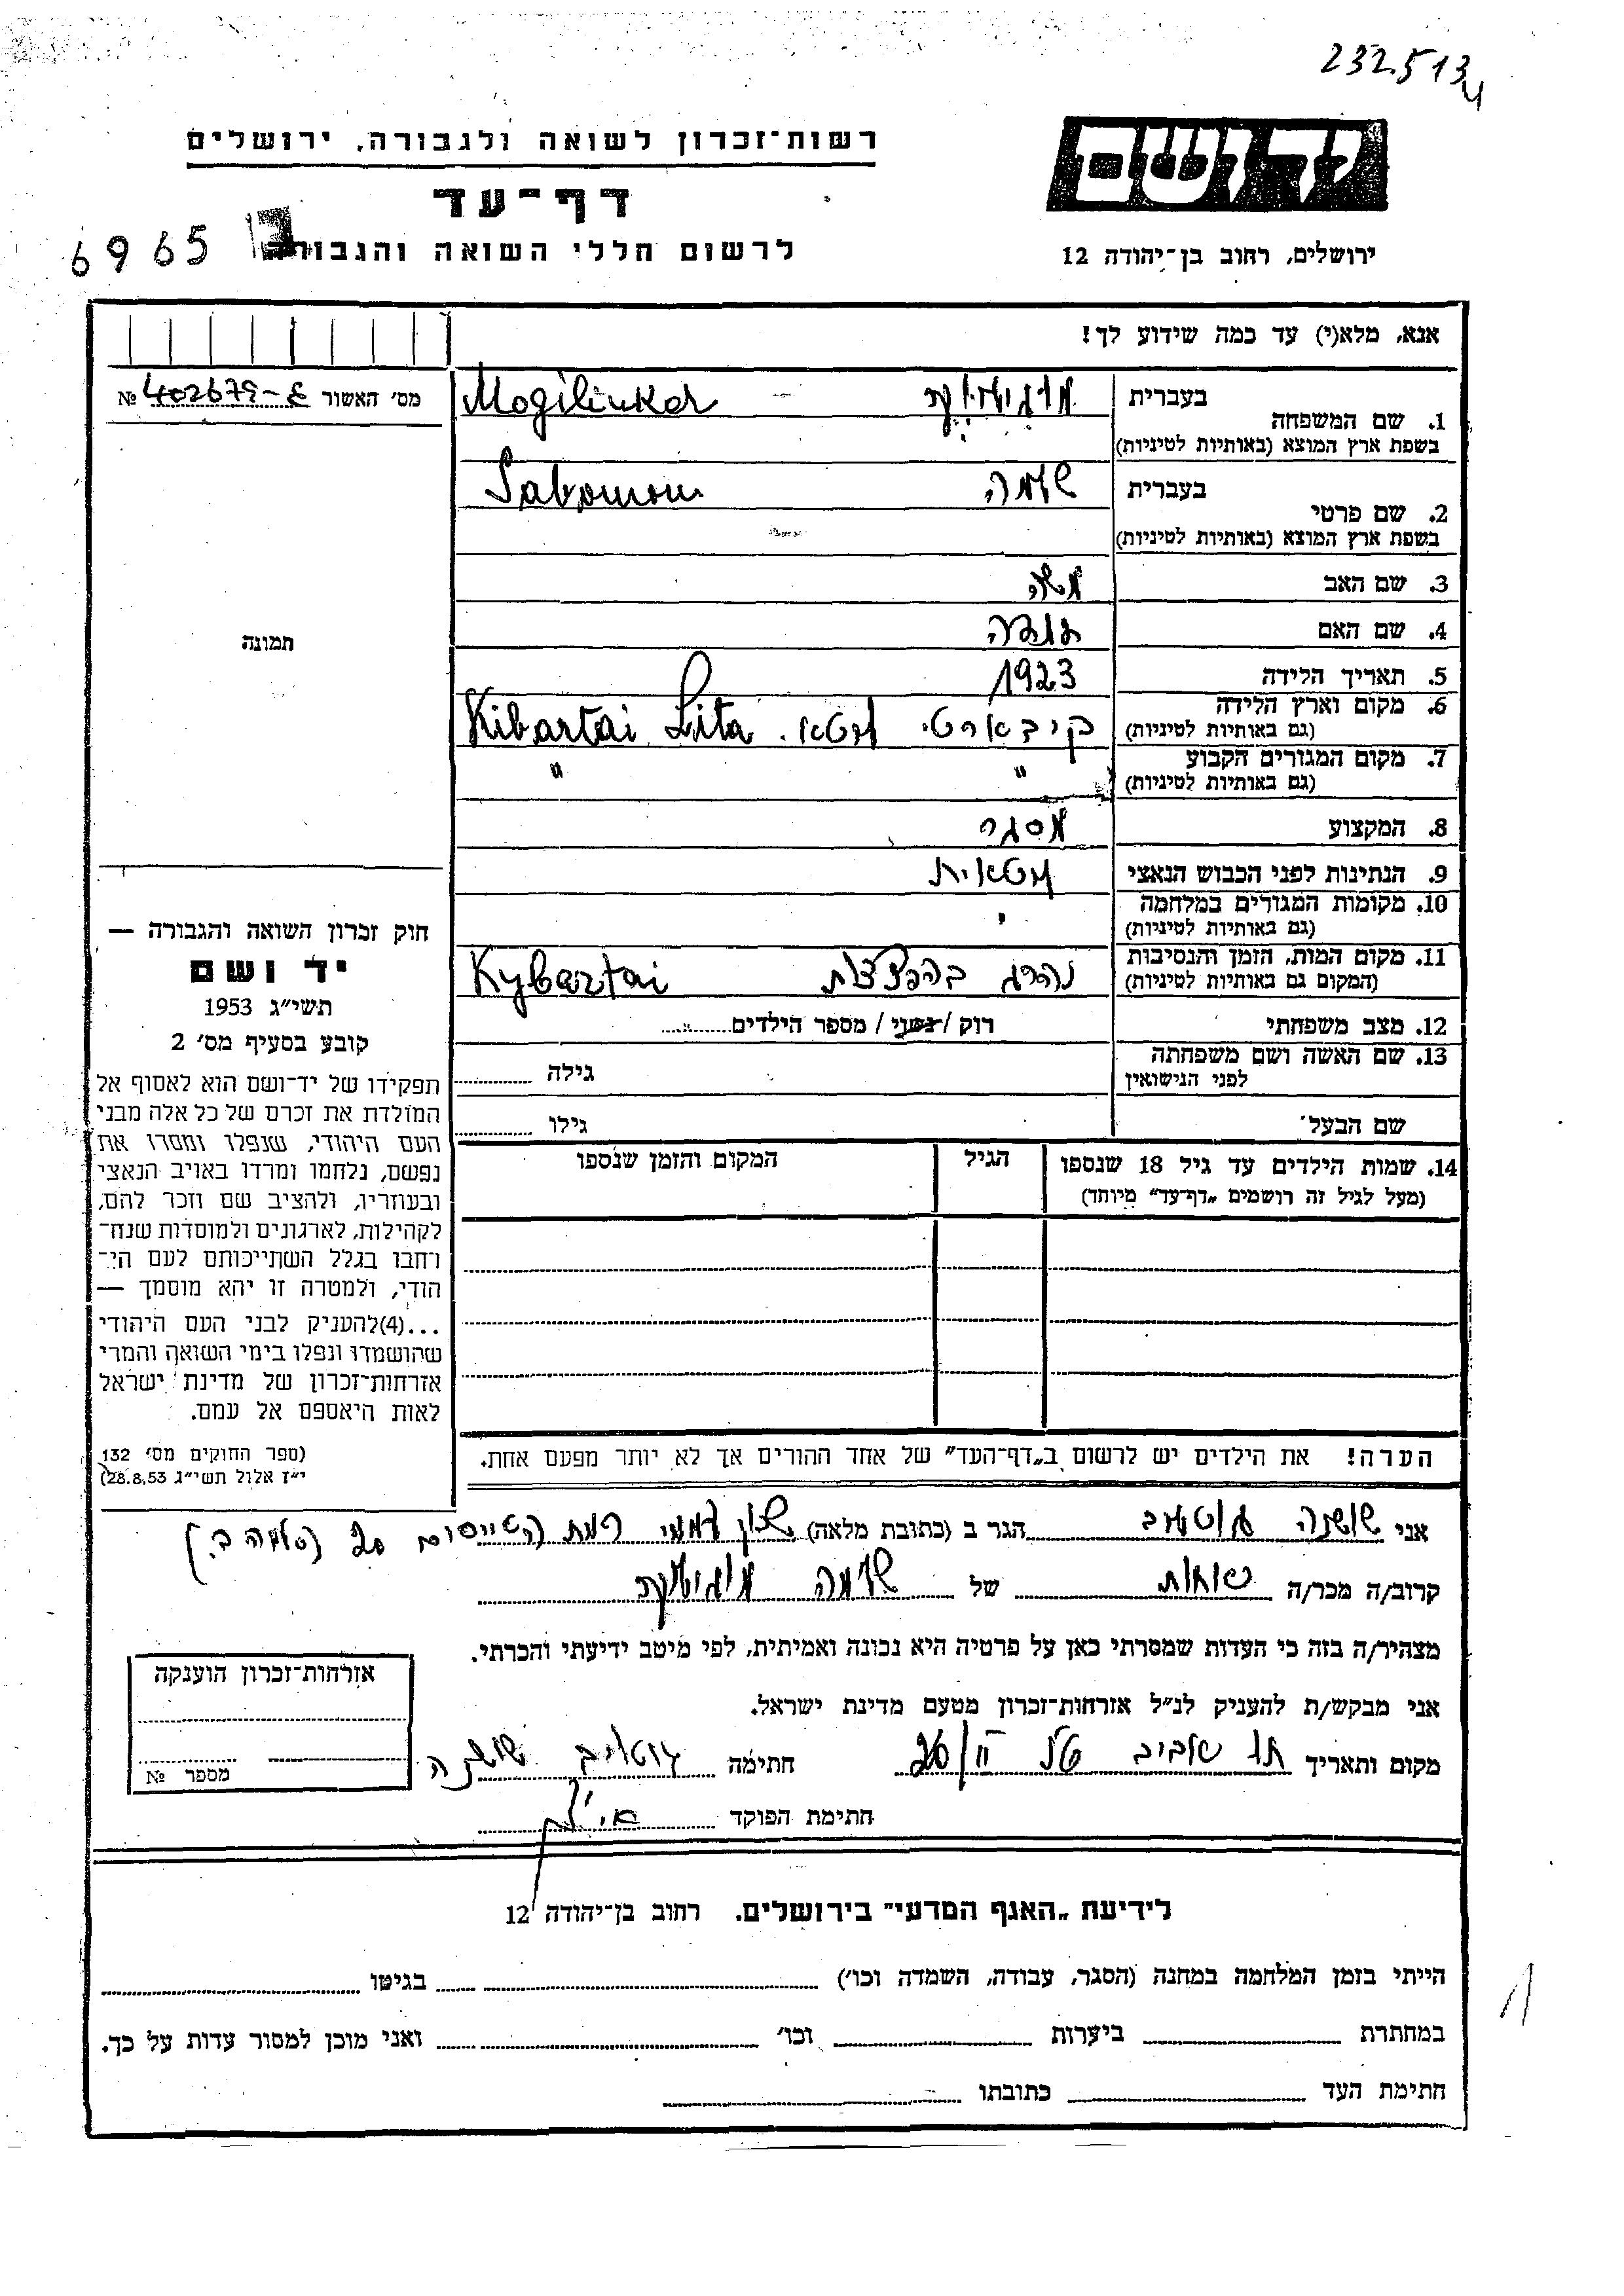 232.513
4
רשות־זכרון לשואה ולגבורה, ירושלים
דף־עד
לרשום חללי השואה והגבורה
6965
יד ושם
ירושלים, רחוב בן־יהודה 12
אנא, מלא(י) עד כמה שידוע לך!
מס׳ האשור № 402679-ع
תמונה
1. שם המשפחה בעברית
בשפת ארץ המוצא (באותיות לטיניות)
Mogilinker
2. שם פרטי בעברית שלמה
בשפת ארץ המוצא (באותיות לטיניות)
Salomon
3. שם האב משה
4. שם האם
5. תאריך הלידה 1923
6. מקום וארץ הלידה קיבארטי ליטא. Kibartai Lita
(גם באותיות לטיניות)
7. מקום המגורים הקבוע " "
(גם באותיות לטיניות)
8. המקצוע מסגר
9. הנתינות לפני הכבוש הנאצי ליטאית
10. מקומות המגורים במלחמה
(גם באותיות לטיניות)
11. מקום המות, הזמן והנסיבות נהרג בהפצצות Kybartai
(המקום גם באותיות לטיניות)
12. מצב משפחתי רוק / נשוי / מספר הילדים
13. שם האשה ושם משפחתה
לפני הנישואין
גילה
שם הבעל
גילו
14. שמות הילדים עד גיל 18 שנספו
(מעל לגיל זה רושמים „דף־עד" מיוחד)
הגיל
המקום והזמן שנספו
הערה! את הילדים יש לרשום ב„דף־העד" של אחד ההורים אך לא יותר מפעם אחת.
חוק זכרון השואה והגבורה —
יד ושם
תשי״ג 1953
קובע בסעיף מס׳ 2
תפקידו של יד־ושם הוא לאסוף אל
המולדת את זכרם של כל אלה מבני
העם היהודי, שנפלו ומסרו את
נפשם, נלחמו ומרדו באויב הנאצי
ובעוזריו, ולהציב שם וזכר להם,
לקהילות, לארגונים ולמוסדות שנח־
רחבו בגלל השתייכותם לעם הי־
הודי, ולמטרה זו יהא מוסמך —
...(4)להעניק לבני העם היהודי
שהושמדו ונפלו בימי השואה והמרי
אזרחות־זכרון של מדינת ישראל
לאות היאספם אל עמם.
(ספר החוקים מס׳ 132
י״ז אלול תשי״ג 28.8.53)
אני שושנה גוטליב הגר ב (כתובת מלאה) שכון רמת הטייסים 20
קרוב/ה מכר/ה של שלמה
מצהיר/ה בזה כי העדות שמסרתי כאן על פרטיה היא נכונה ואמיתית, לפי מיטב ידיעתי והכרתי.
אני מבקש/ת להעניק לנ״ל אזרחות־זכרון מטעם מדינת ישראל.
מקום ותאריך תל אביב 26/II חתימה גוטליב שושנה
חתימת הפוקד
אזרחות־זכרון הוענקה
מספר №
לידיעת „האגף המדעי" בירושלים. רחוב בן־יהודה 12
הייתי בזמן המלחמה במחנה (הסגר, עבודה, השמדה וכו׳) בגיטו
במחתרת ביערות וכו׳ ואני מוכן למסור עדות על כך.
חתימת העד כתובתו
1